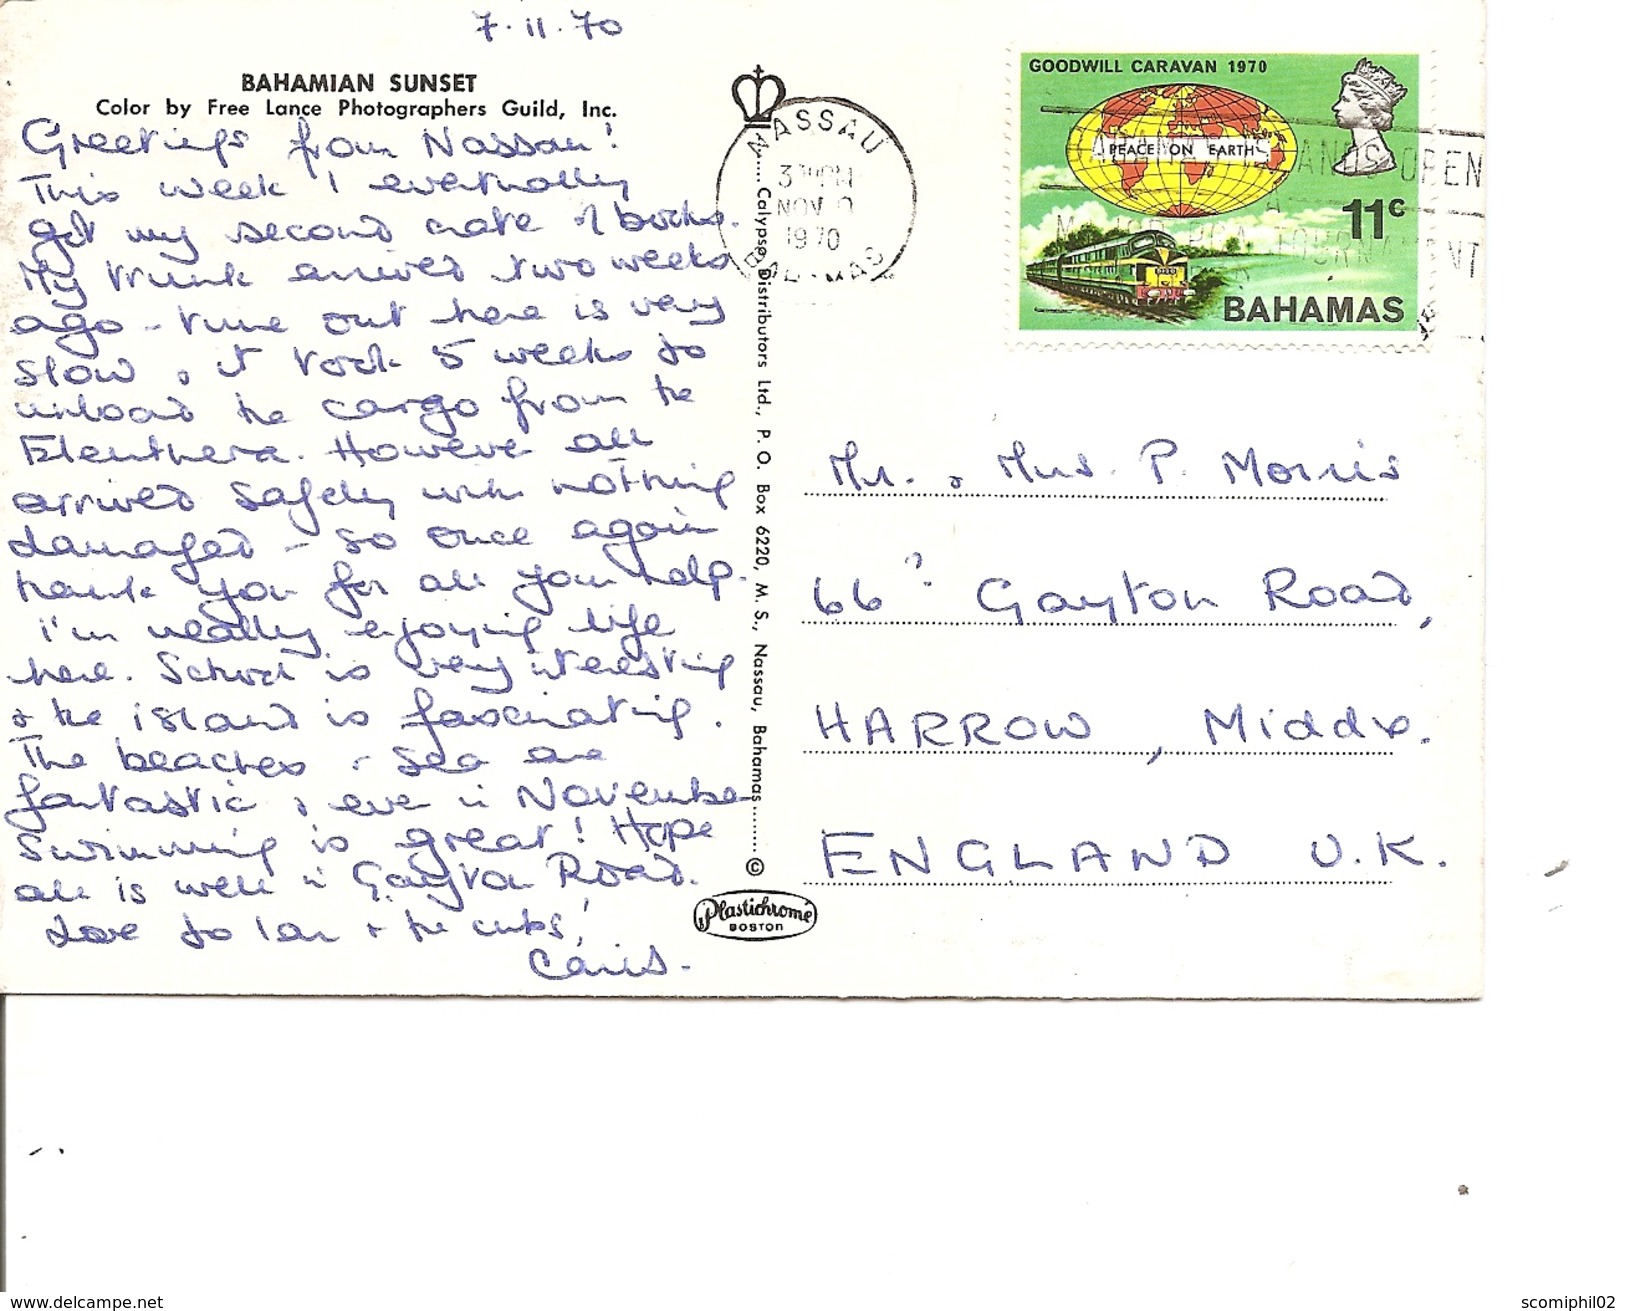 7·11·70
BAHAMIAN SUNSET
Color by Free Lance Photographers Guild, Inc.
Greetings from Nassau!
This week I eventually
got my second crate of books.
My trunk arrived two weeks
ago - time out here is very
slow, it took 5 weeks to
unload the cargo from the
Eleuthera. However all
arrived safely with nothing
damaged - so once again
thank you for all your help.
I'm really enjoying life
here. School is very interesting
& the island is fascinating.
The beaches & sea are
fantastic & even in November
swimming is great! Hope
all is well in Gayton Road.
Love to Ian & the cubs!
A...... Calypso Distributors Ltd., P. O. Box 6220, M. S., Nassau, Bahamas......... ©
Plastichrome
BOSTON
NASSAU
NOV
1970
BAHAMAS
GOODWILL CARAVAN 1970
PEACE ON EARTH
11c
BAHAMAS
ISLANDS OPEN
A
TOURNAMENT
Mr. & Mrs. P. Morris
66 Gayton Road,
HARROW, Middx.
ENGLAND U.K.
delcampe.net
scomiphil02